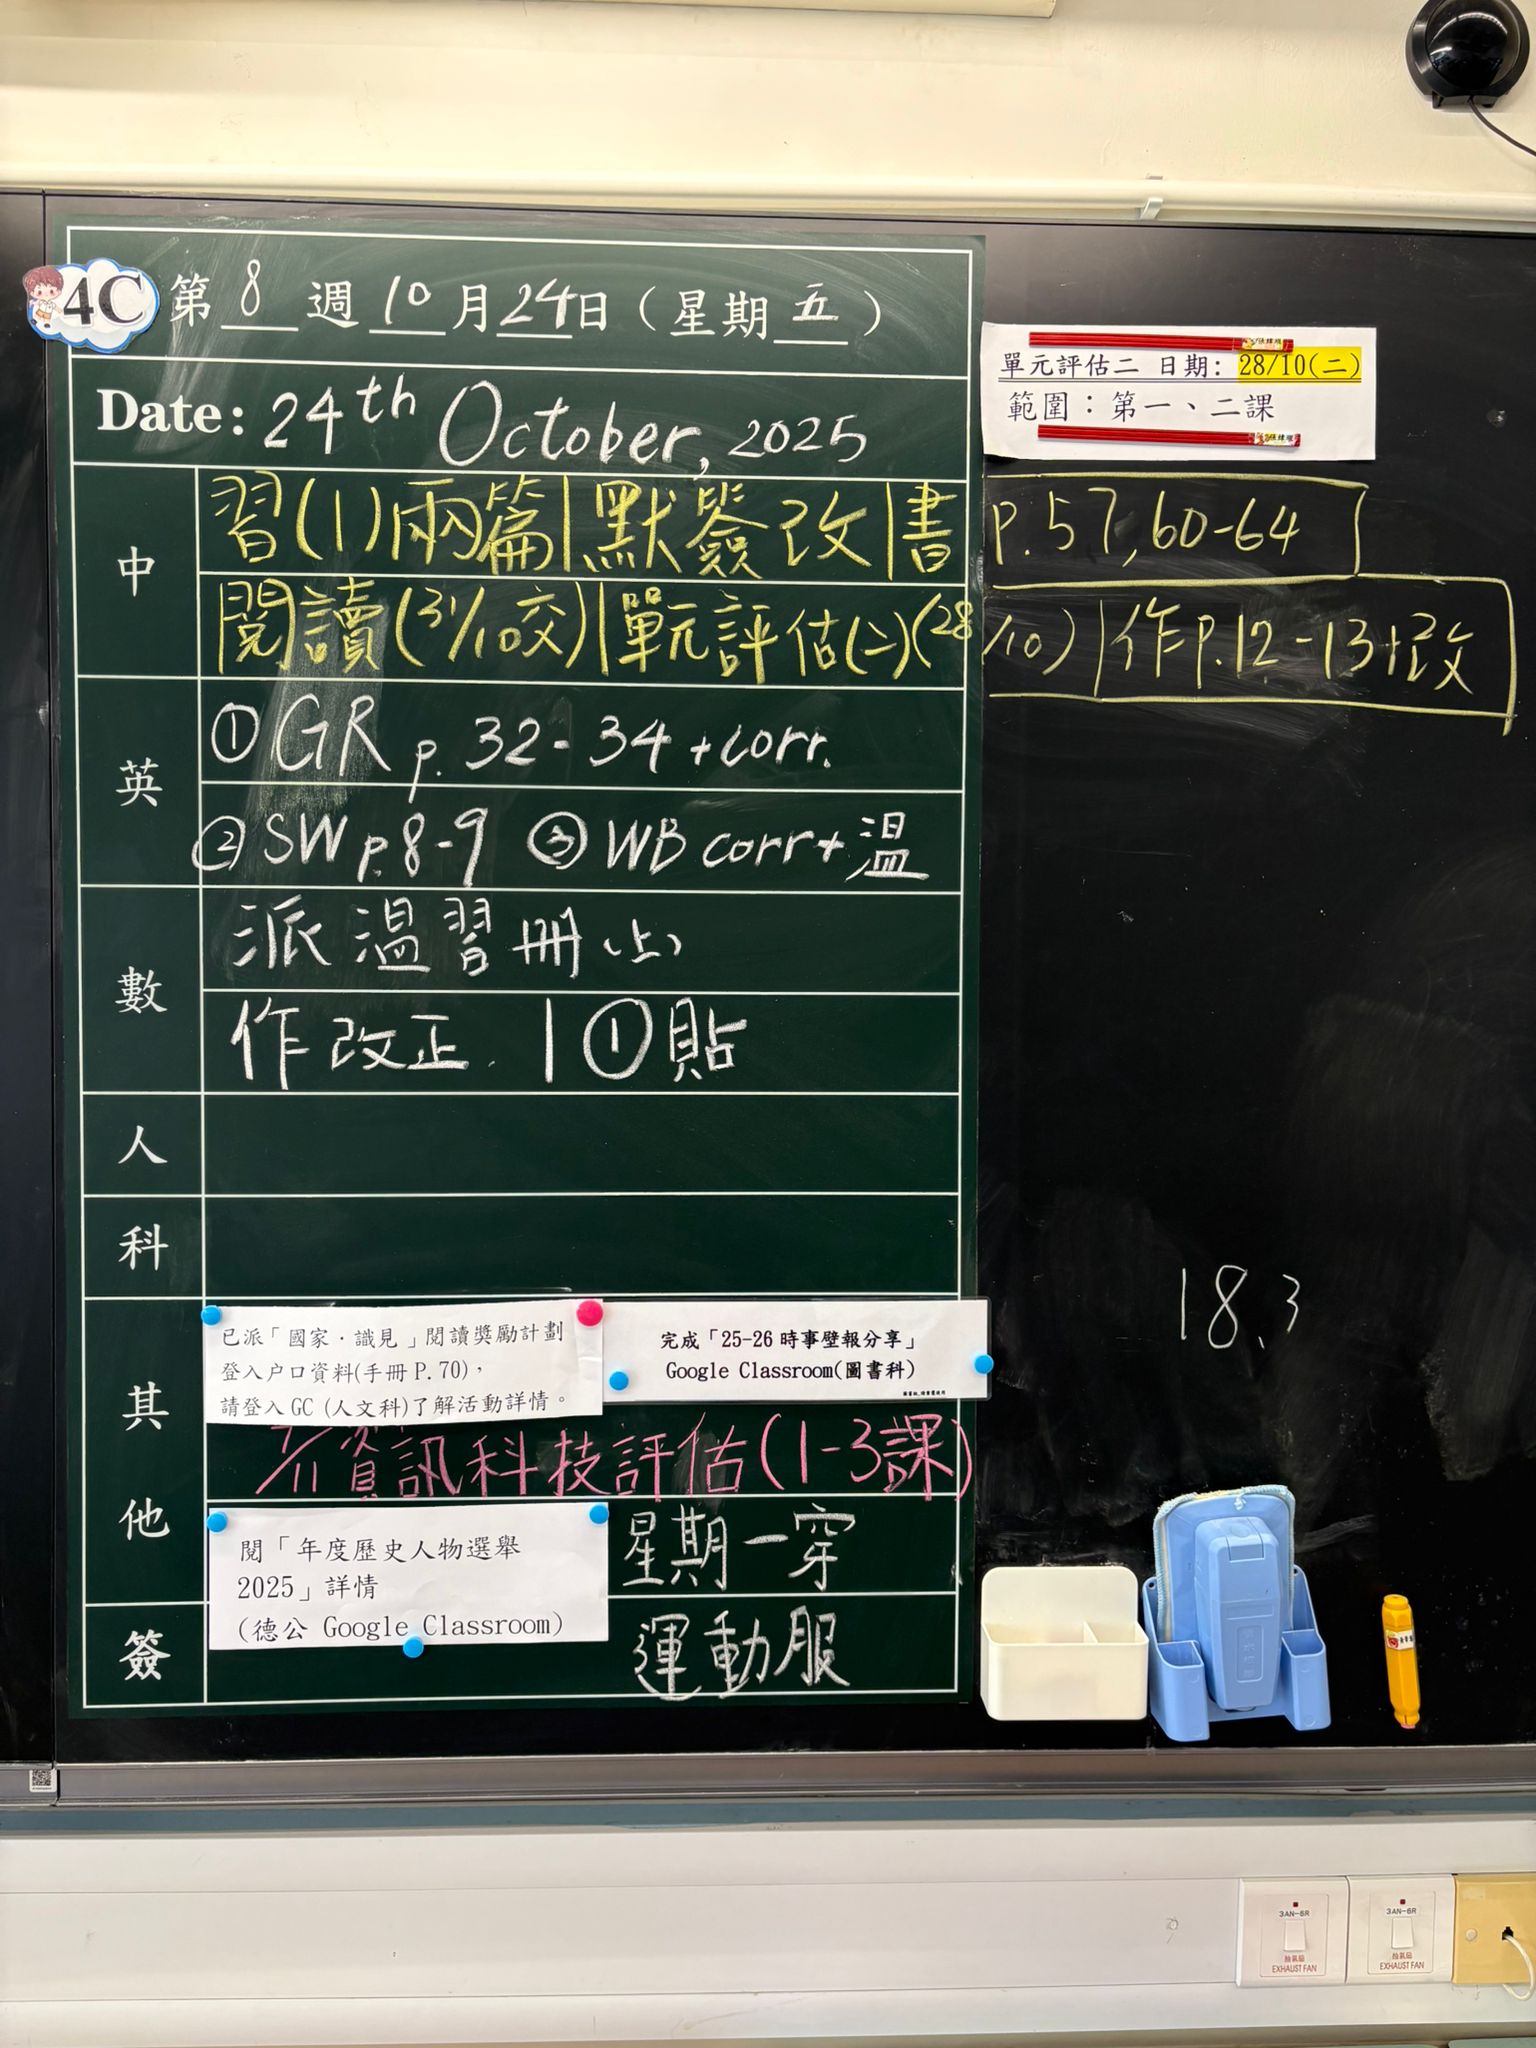 4C
第 8 週 10 月 24 日 ( 星期 五 )
Date: 24th October, 2025
單元評估二 日期: 28/10(二)
範圍：第一、二課
中
習(1)兩篇|默簽改|書 P.57, 60-64
閱讀(31/10交)|單元評估(二)(28/10)|作P.12-13+改
英
① GR p. 32-34 + corr.
② SW p.8-9 ③ WB corr + 溫
數
派溫習冊(上)
作改正. 1①貼
人
科
18.3
其他
已派「國家．識見」閱讀獎勵計劃
登入户口資料(手冊 P.70)，
請登入 GC (人文科)了解活動詳情。
完成「25-26 時事壁報分享」
Google Classroom(圖書科)
/11資訊科技評估(1-3課)
閱「年度歷史人物選舉
2025」詳情
(德公 Google Classroom)
星期一穿
運動服
簽
3AN-6R
抽氣扇
EXHAUST FAN
3AN-6R
抽氣扇
EXHAUST FAN